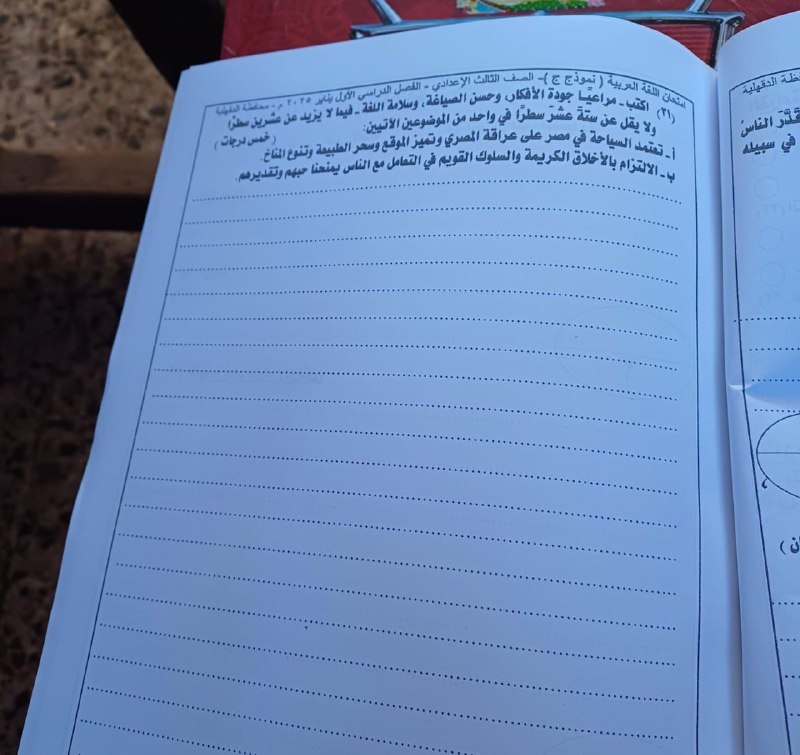 امتحان اللغة العربية ( نموذج ج ) - الصف الثالث الإعدادي - الفصل الدراسي الأول يناير ٢٠٢٥ م - محافظة الدقهلية
(٣١) اكتب - مراعيًا جودة الأفكار، وحسن الصياغة، وسلامة اللغة - فيما لا يزيد عن عشرين سطرًا
ولا يقل عن ستةَ عشَرَ سطرًا في واحد من الموضوعين الآتيين:
(خمس درجات)
أ - تعتمد السياحة في مصر على عراقة المصري وتميز الموقع وسحر الطبيعة وتنوع المناخ.
ب - الالتزام بالأخلاق الكريمة والسلوك القويم في التعامل مع الناس يمنحنا حبهم وتقديرهم.
الدقهلية
الناس
في سبيله